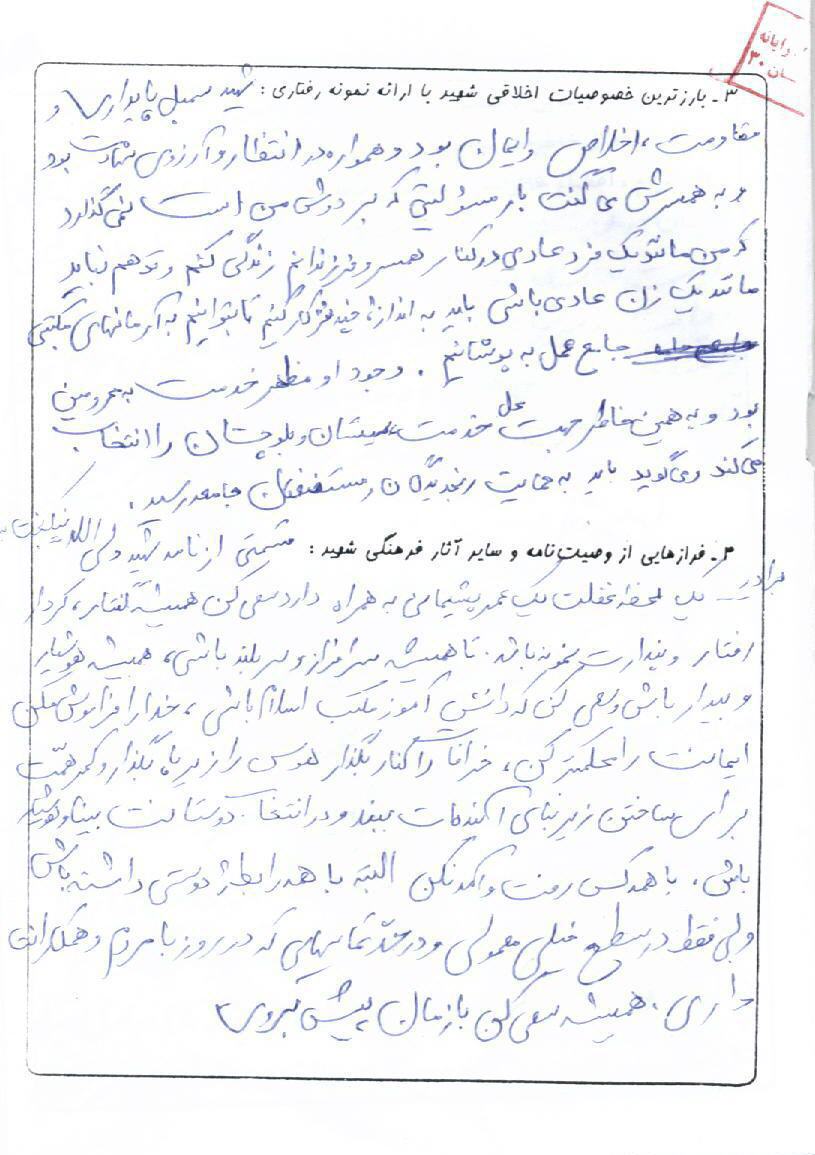 ۳ـ بارزترین خصوصیات اخلاقی شهید با ارائه نمونه رفتاری : شهید سمبل پایداری و
مقاومت ، اخلاص وایمان بود و همواره در انتظار و آرزوی شهادت بود
و به همسرش می گفت بار مسؤلیتی که بر دوش من است نمی گذارد
که من مانند یک فرد عادی در کنار همسر و فرزندانم زندگی کنم و تو هم نباید
مانند یک زن عادی باشی باید به اندازه چند نفر کار کنیم تا بتوانیم به آرمانهای مکتبی
جامع عمل به پوشانیم . وجود او مظهر خدمت به محرومین
بود و به همین خاطر جهت محل خدمت سیستان و بلوچستان را انتخاب
می کند و می گوید باید به حمایت رنجدیدگان و مستضعفان جامعه رسید .
۴ـ فرازهایی از وصیت‌نامه و سایر آثار فرهنگی شهید : قسمتی از نامه شهید ولی الله نیکبخت به
برادرش یک لحظه غفلت یک عمر پشیمانی به همراه دارد سعی کن همیشه گفتار ، کردار
رفتار و پندارت نمونه باشد . تا همیشه سرافراز و سربلند باشی ، همیشه هوشیار
و بیدار باش و سعی کن که دانش آموز مکتب اسلام باشی ، خدا را فراموش مکن
ایمانت را محکمتر کن ، خرافات را کنار بگذار هوس را زیر پا بگذار و کمر همّت
برای ساختن زیربنای آینده‌ات ببند و در انتخاب دوستانت بینا و هوشیار
باش . با همه کس رفت و آمد نکن البته با همه رابطه دوستی داشته باش
ولی فقط در سطح خیلی معمولی و در حدّ تماسهایی که در روز با مردم و همکارانت
داری . همیشه سعی کن با زمان پیش بروی